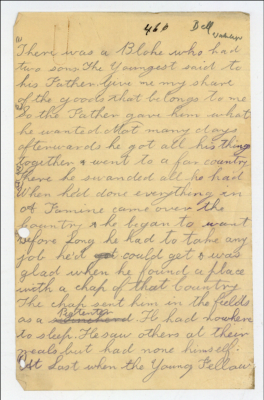 460 Dell
There was a Bloke who had
two sons. The Youngest said to
his Father Give me my share
of the goods that belongs to me
So the Father gave him what
he wanted. Not many days
afterwards he got all his things
together & went to a far country
There he squandered all he had
When he'd done everything in
A Famine came over the
Country & he began to want
Before long he had to take any
job he'd could get & was
glad when he found a place
with a chap of that Country
The chap sent him in the fields
as a He had nowhere
to sleep. He saw others at their
meals but had none himself.
At last when the Young Fellow